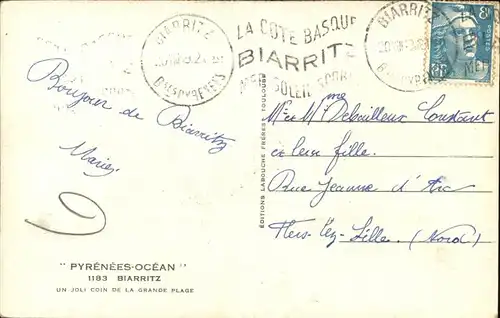 BIARRITZ
Bses PYRENEES
LA COTE BASQUE
BIARRITZ
MER SOLEIL SPORTS
BIARRITZ
Bses PYRENEES
8F
Bonjour de Biarritz
Marie.
Mr et Mme Debailleux Constant
et leur fille.
Rue Jeanne d'Arc
Flers-lez-Lille. (Nord)
EDITIONS LABOUCHE FRÈRES TOULOUSE
" PYRÉNÉES-OCÉAN "
1183 BIARRITZ
UN JOLI COIN DE LA GRANDE PLAGE